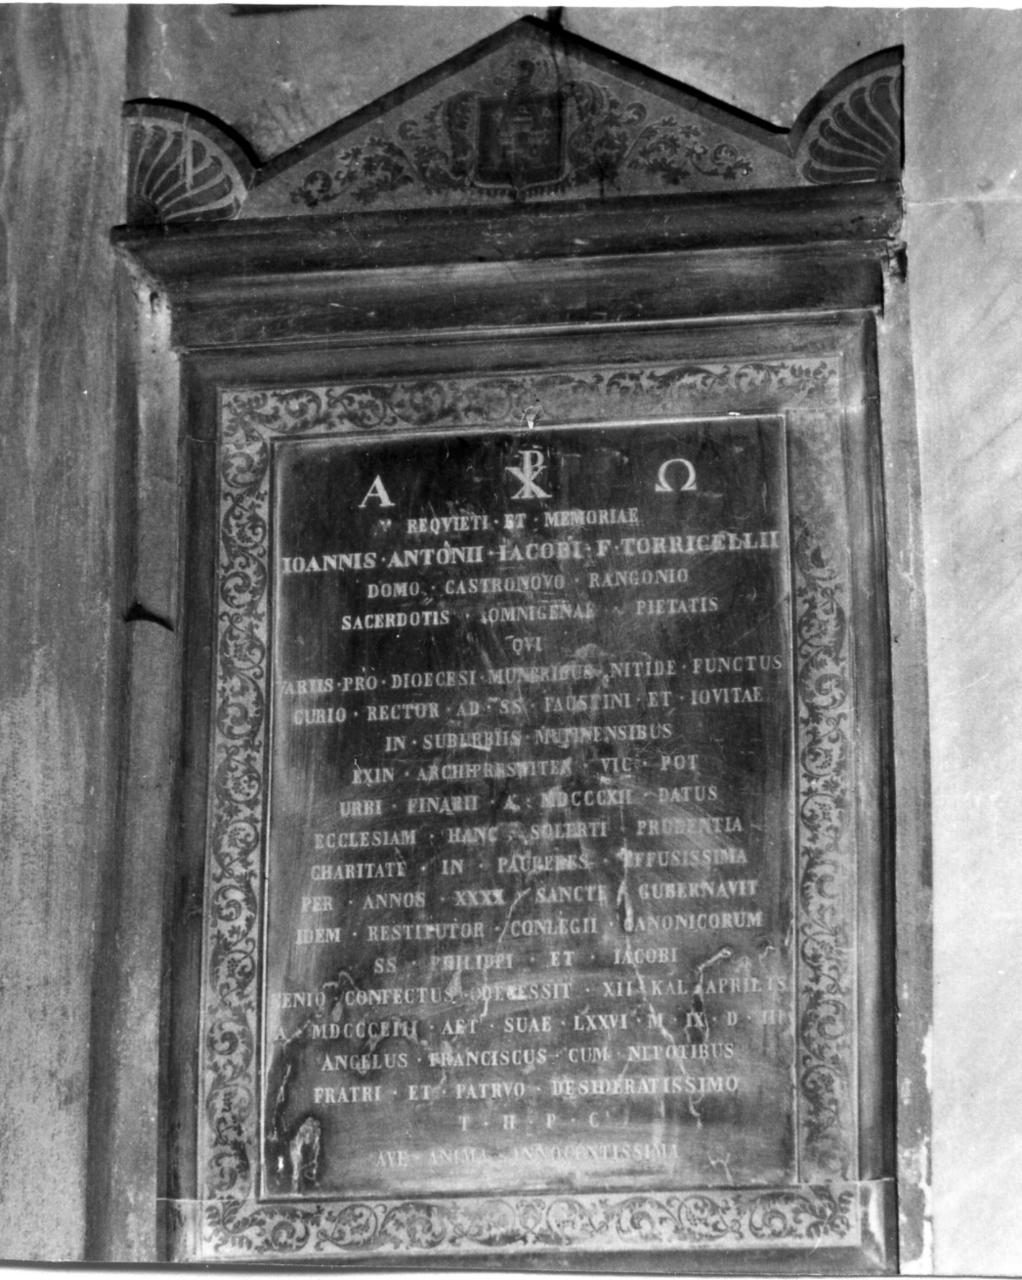 Α ☧ Ω
REQVIETI · ET · MEMORIAE
IOANNIS · ANTONII · IACOBI · F · TORRICELLII
DOMO · CASTRONOVO · RANGONIO
SACERDOTIS · OMNIGENAE · PIETATIS
QVI
VARIIS · PRO · DIOECESI · MUNERIBUS · NITIDE · FUNCTUS
CURIO · RECTOR · AD · SS · FAUSTINI · ET · IOVITAE
IN · SUBURBIIS · MUTINENSIBUS
EXIN · ARCHIPRESBITER · VIC · POT
URBI · FINARII · A · MDCCCXII · DATUS
ECCLESIAM · HANC · SOLERTI · PRUDENTIA
CHARITATE · IN · PAUPERES · EFFUSISSIMA
PER · ANNOS · XXXX · SANCTE · GUBERNAVIT
IDEM · RESTITUTOR · CONLEGII · CANONICORUM
SS · PHILIPPI · ET · IACOBI
SENIO · CONFECTUS · DECESSIT · XII · KAL · APRILIS
AET · SUAE · LXXVI · M · IX · D · III
ANGELUS · FRANCISCUS · CUM · NEPOTIBUS
FRATRI · ET · PATRVO · DESIDERATISSIMO
T · H · P · C
AVE · ANIMA · INNOCENTISSIMA